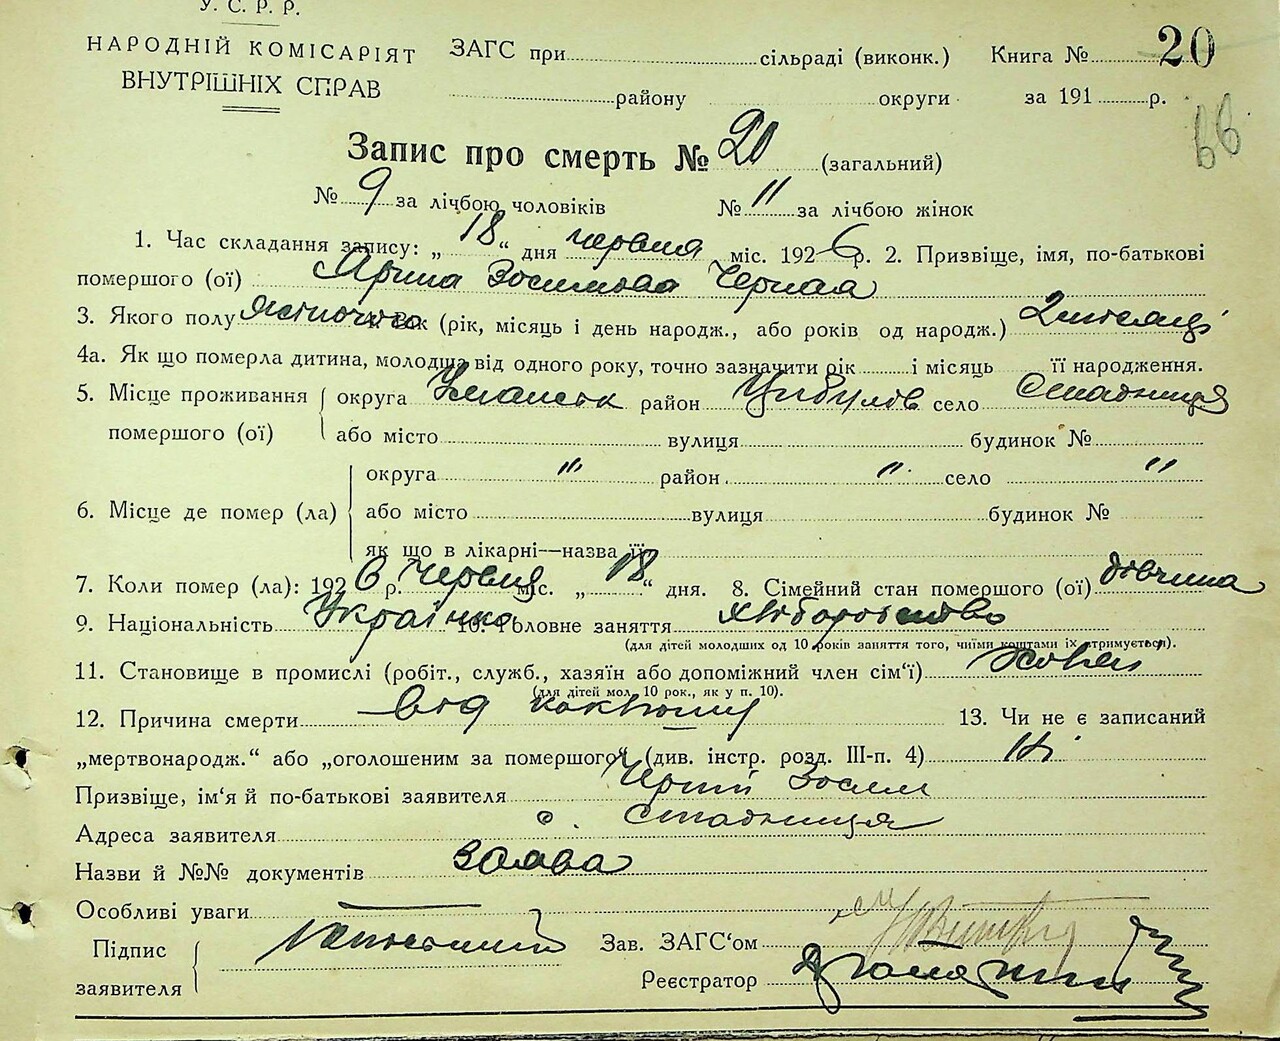 У.С.Р.Р.
НАРОДНІЙ КОМІСАРІЯТ
ВНУТРІШНІХ СПРАВ
ЗАГС при сільраді (виконк.) Книга № 20
району округи за 191 р.
66
Запис про смерть № 20 (загальний)
№ 9 за лічбою чоловіків № 11 за лічбою жінок
1. Час складання запису: „ 18 “ дня червня міс. 1926 р. 2. Призвіще, імя, по-батькові
помершого (ої) Ярина Зосимова Черная
3. Якого полу жіночого вік (рік, місяць і день народж., або років од народж.) 2 місяці
4а. Як що померла дитина, молодша від одного року, точно зазначити рік і місяць її народження.
5. Місце проживання помершого (ої) округа Уманськ район Цибулов село Стадниця
або місто вулиця будинок №
6. Місце де помер (ла) округа " район " село "
або місто вулиця будинок №
як що в лікарні—назва її
7. Коли помер (ла): 1926 р. Червня міс. „ 18 “ дня. 8. Сімейний стан помершого (ої) дівчина
9. Національність Українка 10. Головне заняття хліборобство
(для дітей молодших од 10 років заняття того, чиїми коштами їх утримується).
11. Становище в промислі (робіт., служб., хазяїн або допоміжний член сім‘ї)
(для дітей мол. 10 рок., як у п. 10).
12. Причина смерти від коклюшу 13. Чи не є записаний
„мертвонародж.“ або „оголошеним за помершого“ (див. інстр. розд. III-п. 4) Ні
Призвіще, ім‘я й по-батькові заявителя Чорний Зосим
Адреса заявителя с. Стадниця
Назви й №№ документів Заява
Особливі уваги —
Підпис заявителя
Зав. ЗАГС‘ом
Реєстратор